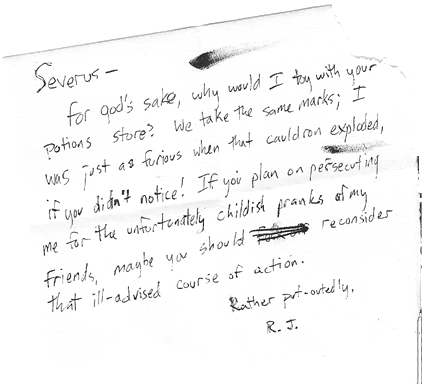 Severus—
for god's sake, why would I toy with your
potions store? We take the same marks; I
was just as furious when that cauldron exploded,
if you didn't notice! If you plan on persecuting
me for the unfortunately childish pranks of my
friends, maybe you should reconsider
that ill-advised course of action.
Rather put-outedly,
R. J.